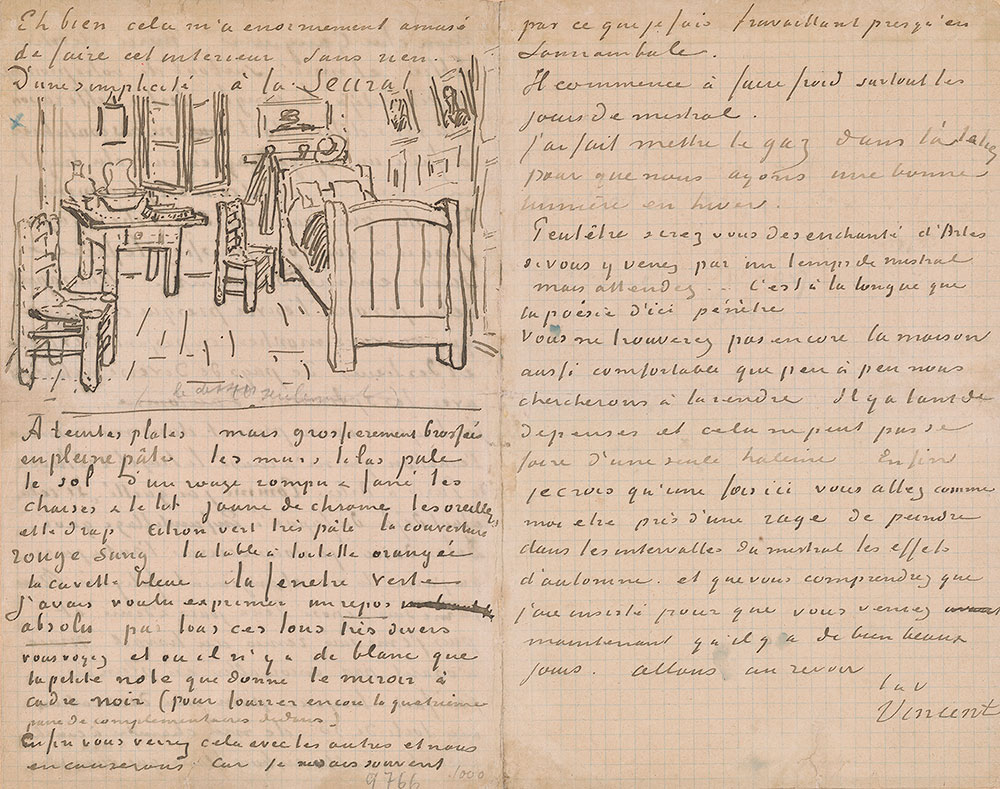 Eh bien cela m'a enormement amusé
de faire cet interieur sans rien.
D'une simplicité à la Seurat
À teintes plates mais grossierement brossées
en pleine pâte les murs lilas pale
le sol d'un rouge rompu & fané les
chaises & le lit jaune de chrome les oreillers
et le drap citron vert très pâle la couverture
rouge sang la table à toilette orangée
la cuvette bleue la fenetre verte
J'avais voulu exprimer un repos
absolu par tous ces tons très divers
vous voyez et où il n'y a de blanc que
la petite note que donne le miroir à
cadre noir (pour fourrer encore la quatrieme
paire de complementaires dedans)
Enfin vous verrez cela avec les autres et nous
en causerons car je ne sais souvent
9766
1000
par ce que je fais travaillant presqu'en
somnambule.
Il commence à faire froid surtout les
jours de mistral.
J'ai fait mettre le gaz dans l'atelier
pour que nous ayons une bonne
lumière en hiver.
Peutêtre serez vous desenchanté d'Arles
si vous y venez par un temps de mistral
mais attendez .. C'est à la longue que
la poésie d'ici pénètre
Vous ne trouverez pas encore la maison
aussi comfortable que peu à peu nous
chercherons à la rendre Il y a tant de
depenses et cela ne peut pas se
faire d'une seule haleine Enfin
je crois qu'une fois ici vous allez comme
moi etre pris d'une rage de peindre
dans les intervalles du mistral les effets
d'automne. et que vous comprendrez que
j'aie insisté pour que vous veniez
maintenant qu'il y a de bien beaux
jours. allons au revoir
t. à v.
Vincent